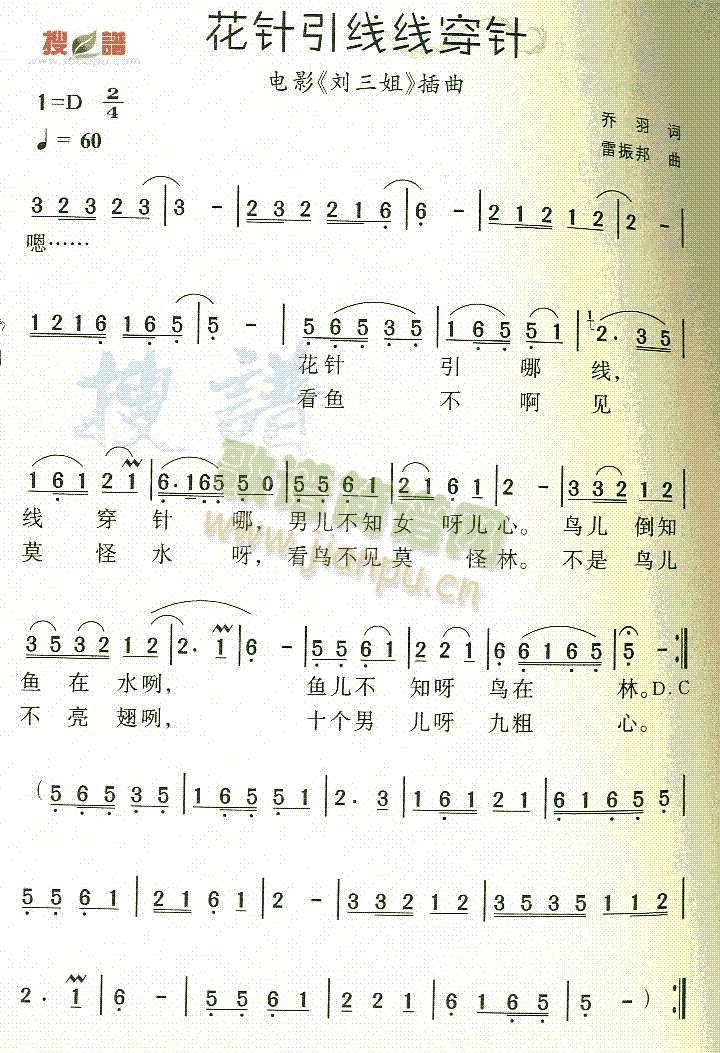 搜譜
www.sooopu.com
花针引线线穿针
电影《刘三姐》插曲
1=D 2/4
♩= 60
乔 羽 词
雷振邦 曲
3 2 3 2 3 | 3 - | 2 3 2 2 1 6 | 6 - | 2 1 2 1 2 | 2 - |
嗯……
1 2 1 6 1 6 5 | 5 - | 5 6 5 3 5 | 1 6 5 5 1 | 1 2. 3 5 |
花针 引 哪 线，
看鱼 不 啊 见
1 6 1 2 1 | 6. 1 6 5 5 0 | 5 5 6 1 | 2 1 6 1 | 2 - | 3 3 2 1 2 |
线 穿 针 哪，男儿不知 女 呀儿 心。 鸟儿 倒知
莫 怪 水 呀，看鸟不见 莫 怪 林。 不是 鸟儿
歌谱简谱网
www.jianpu.cn
3 5 3 2 1 2 | 2. 1 | 6 - | 5 5 6 1 | 2 2 1 | 6 6 1 6 5 | 5 - :||
鱼 在 水 咧， 鱼儿不 知呀 鸟在 林。D.C
不 亮 翅 咧， 十个男 儿呀 九粗 心。
( 5 6 5 3 5 | 1 6 5 5 1 | 2. 3 | 1 6 1 2 1 | 6 1 6 5 5 |
5 5 6 1 | 2 1 6 1 | 2 - | 3 3 2 1 2 | 3 5 3 5 1 1 2 |
2. 1 | 6 - | 5 5 6 1 | 2 2 1 | 6 1 6 5 | 5 - ) :||